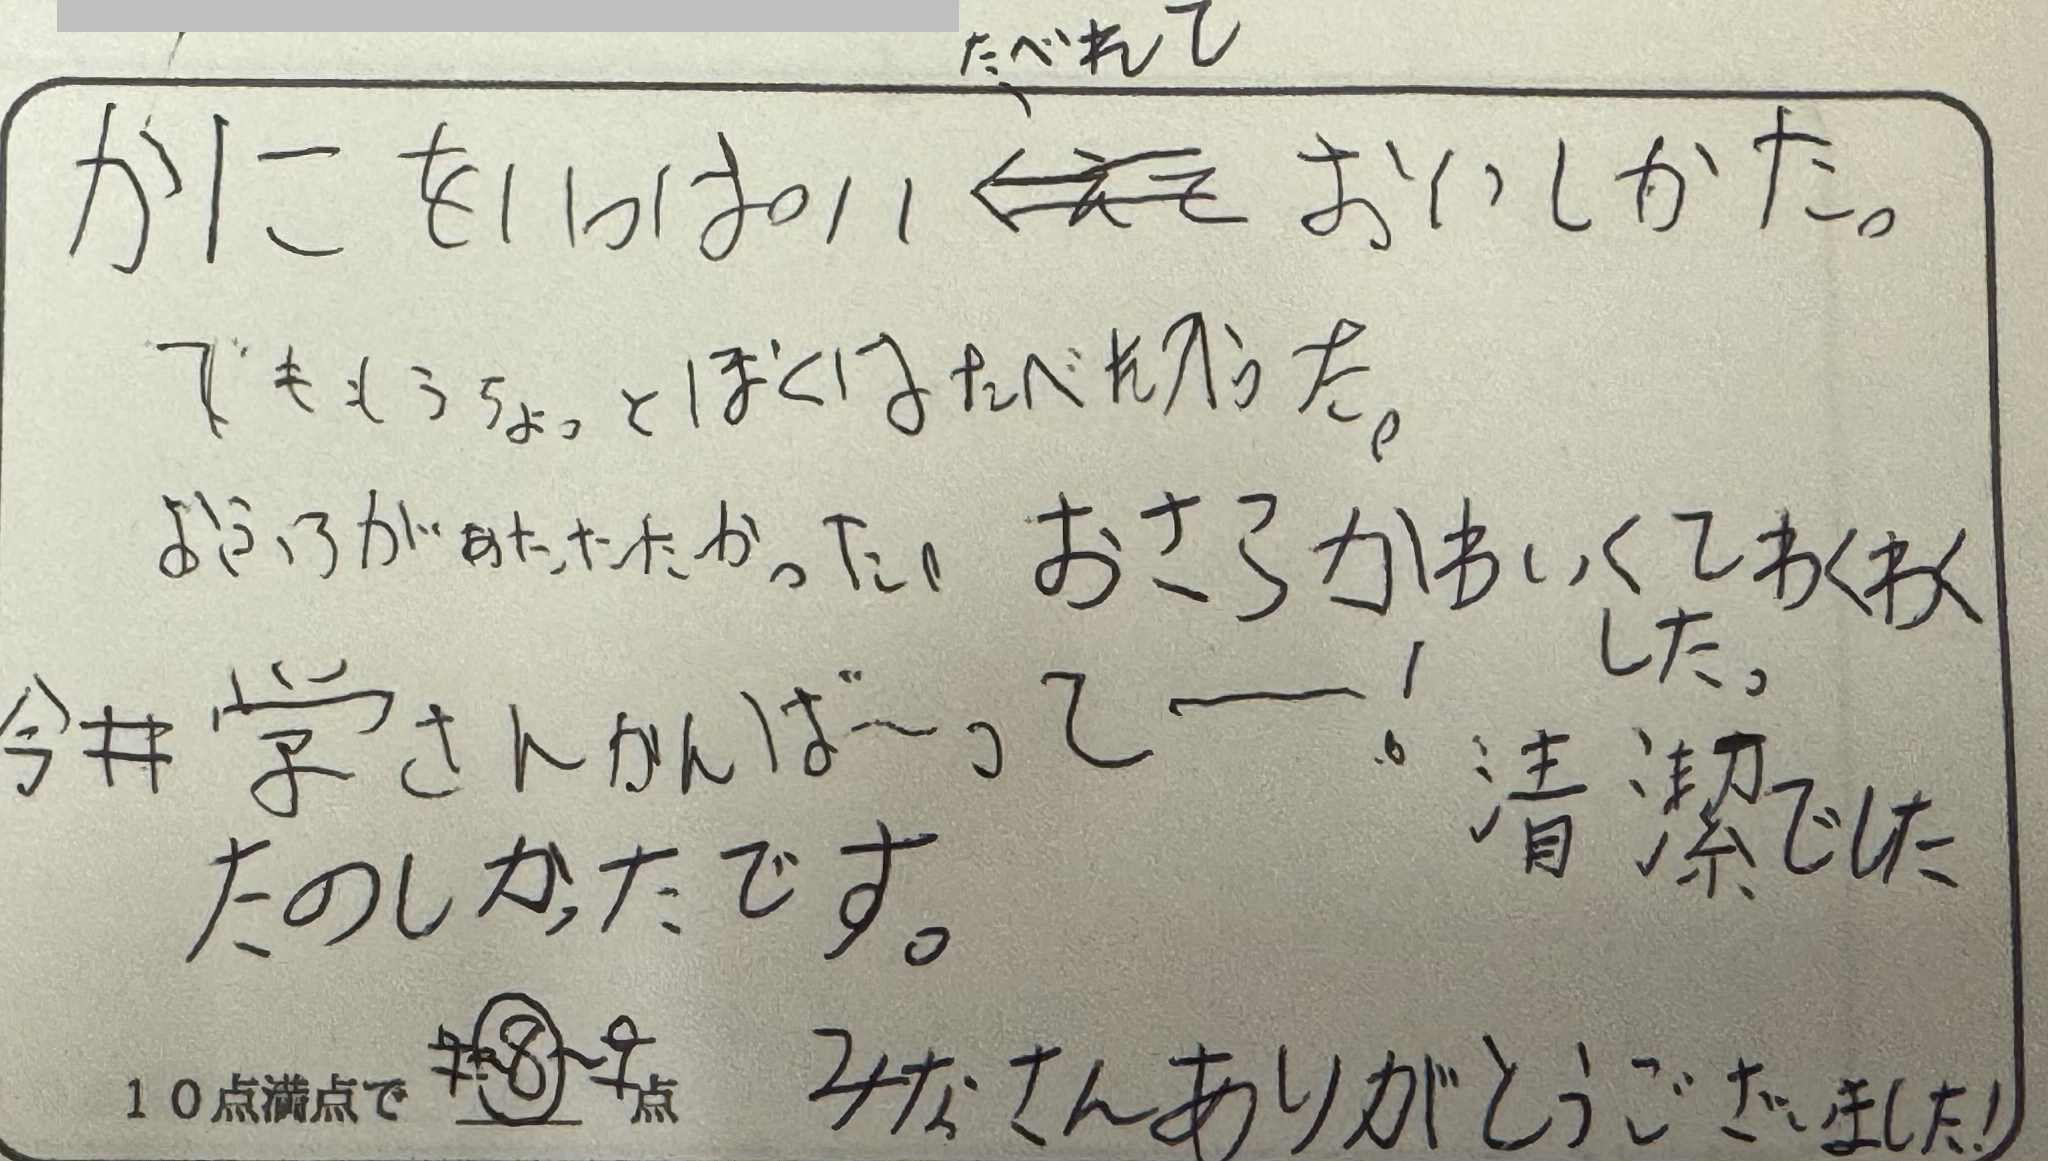 たべれて
かにをいっぱい おいしかた。
でももうちょっとぼくはたべれた。
おふろがあたたかかった。
おさらかわいくてわくわく
した。
今井学さんがんば〜ってー!
清潔でした
たのしかったです。
10点満点で 8 点
みなさんありがとうございました!